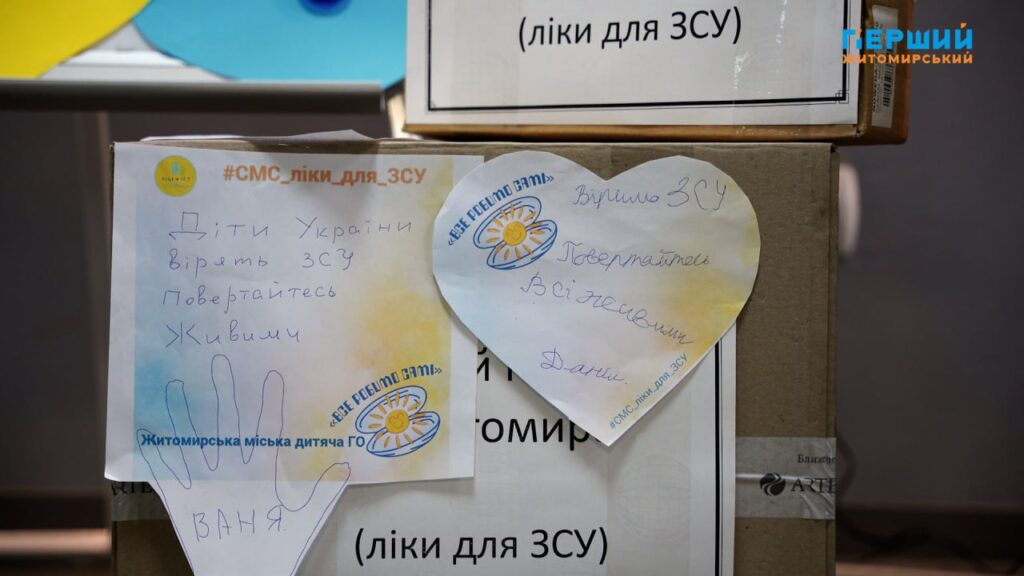 (ліки для ЗСУ)
ПЕРШИЙ
ЖИТОМИРСЬКИЙ
#СМС_ліки_для_ЗСУ
Діти України
вірять ЗСУ
Повертайтесь
Живими
«ВСЕ РОБИМО САМІ»
Житомирська міська дитяча ГО
ВАНЯ
«ВСЕ РОБИМО САМІ»
Віримо ЗСУ
Повертайтесь
Всі живими
Даніл.
#СМС_ліки_для_ЗСУ
томир
(ліки для ЗСУ)
Ближче
ARTE